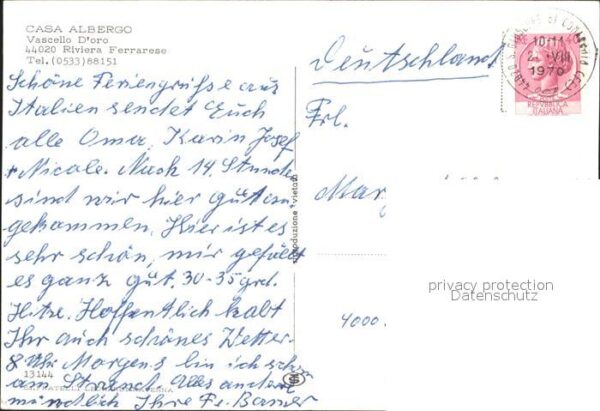 CASA ALBERGO
Vascello D'oro
44020 Riviera Ferrarese
Tel.(0533)88151
Schöne Feriengrüße aus
Italien sendet Euch
alle Oma, Karin, Josef
+ Nicole. Nach 14 Stunden
sind wir hier gut an-
gekommen. Hier ist es
sehr schön, mir gefällt
es ganz gut. 30-35 grd.
Hitze. Hoffentlich habt
Ihr auch schönes Wetter.
8 Uhr Morgens bin ich schon
am Strand. Alles andere
mündlich Ihre Fr.
13144
riproduzione vietata
Deutschland
Frl.
4000
10-11
1970
REPUBBLICA
ITALIANA
privacy protection
Datenschutz